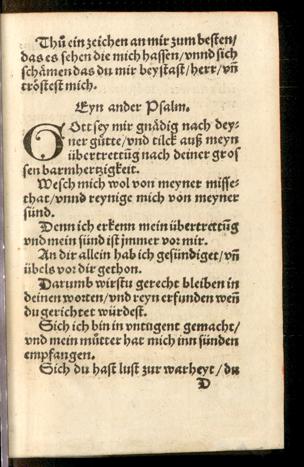 Thů ein zeichen an mir zum besten/
das es sehen die mich hassen/ vnnd sich
schämen das du mir beystast/ herr/ vñ
tröstest mich.
Eyn ander Psalm.
GOtt sey mir gnädig nach dey-
ner gütte/ vnd tilck auß meyn
übertrettũg nach deiner gros
sen barmhertzigkeit.
Wesch mich wol von meyner misse-
that/ vnnd reynige mich von meyner
sünd.
Denn ich erkenn mein übertrettũg
vnd mein sünd ist jmmer vor mir.
An dir allein hab ich gesündiget/ vñ
übels vor dir gethon.
Darumb wirstu gerecht bleiben in
deinen worten/ vnd reyn erfunden weñ
du gerichtet würdest.
Sich ich bin in vntugent gemacht/
vnd mein můtter hat mich inn sünden
empfangen.
Sich du hast lust zur warheyt/ du
D